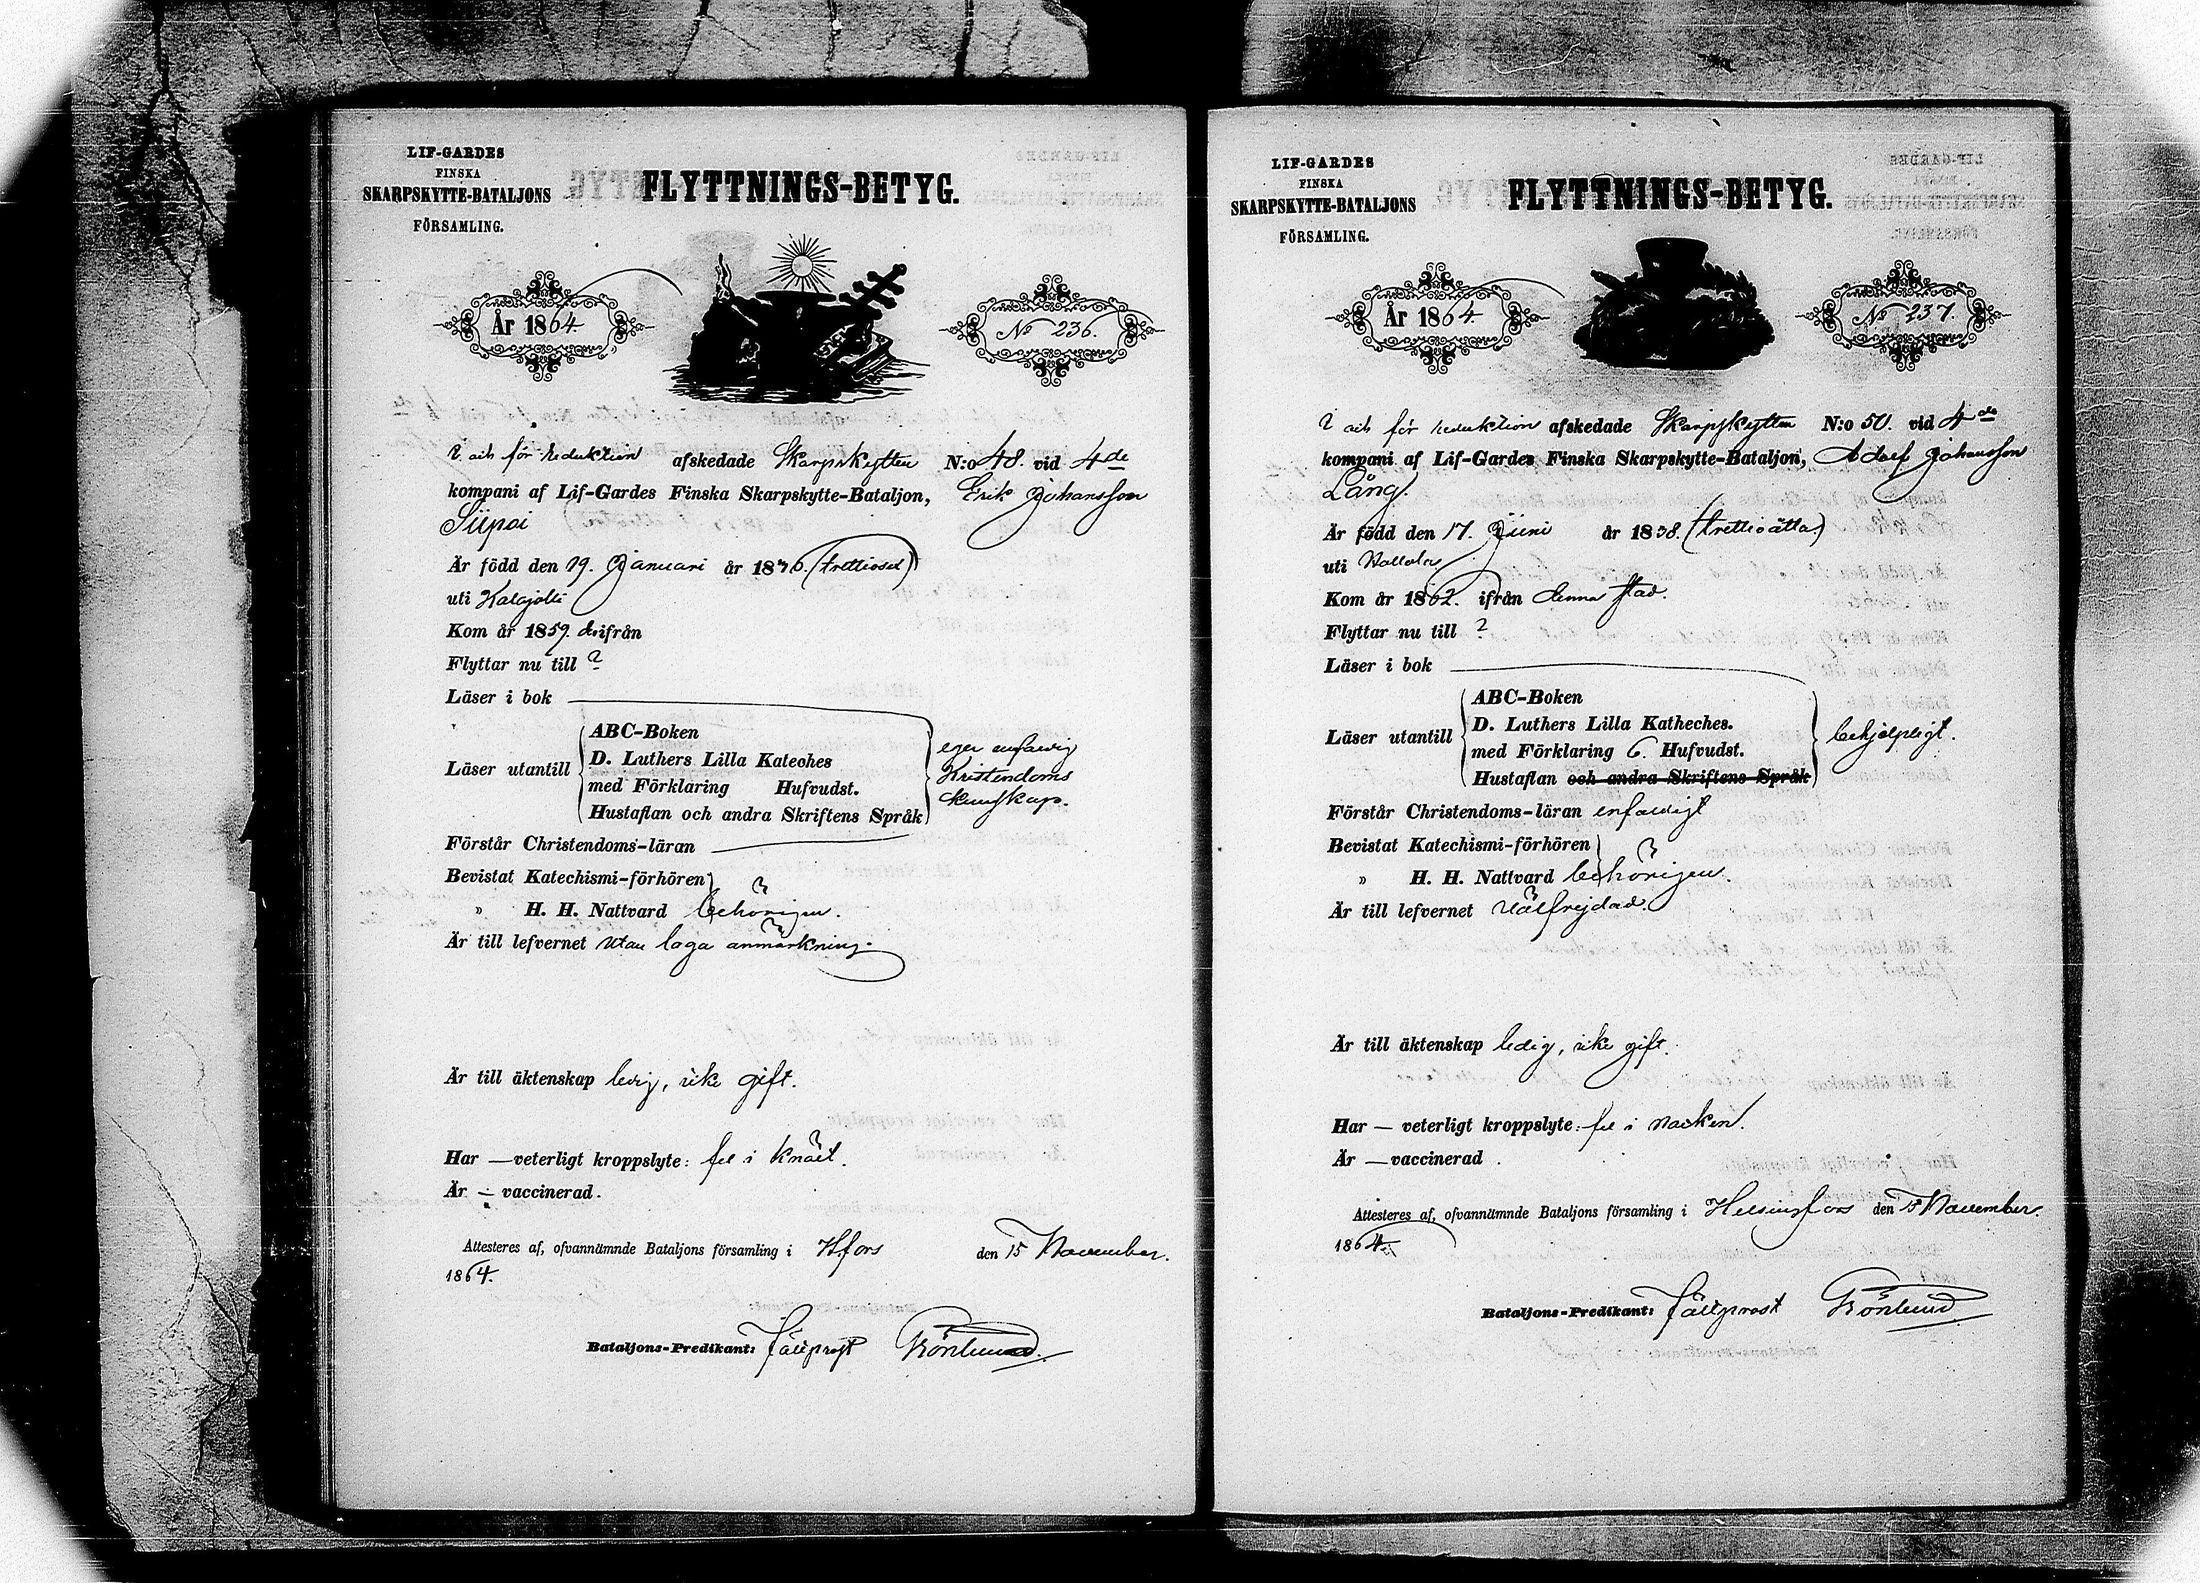 LIF-GARDES
FINSKA
SKARPSKYTTE-BATALJONS
FÖRSAMLING.
FLYTTNINGS-BETYG.
År 1864.
No 236.
för reduktion afskedade Skarpskytten N:o 48. vid 4de
kompani af Lif-Gardes Finska Skarpskytte-Bataljon, Erik Johansson
Siipoi
Är född den 19. Januari år 1836. (trettiosex)
uti Kalajoki
Kom år 1859. ifrån
Flyttar nu till ?
Läser i bok
Läser utantill
ABC-Boken
D. Luthers Lilla Kateches
med Förklaring Hufvudst.
Hustaflan och andra Skriftens Språk
eger enfaldig
Kristendoms
kunskap.
Förstår Christendoms-läran
Bevistat Katechismi-förhören
" H. H. Nattvard behörigen.
Är till lefvernet utan laga anmärkning.
Är till äktenskap ledig, icke gift.
Har — veterligt kroppslyte: fel i knäet.
Är — vaccinerad.
Attesteres af, ofvannämnde Bataljons församling i Hfors den 15 November.
1864.
Bataljons-Predikant: Fältprost Grönlund.
LIF-GARDES
FINSKA
SKARPSKYTTE-BATALJONS
FÖRSAMLING.
FLYTTNINGS-BETYG.
År 1864.
No 237.
för reduktion afskedade Skarpskytten N:o 50. vid 4de
kompani af Lif-Gardes Finska Skarpskytte-Bataljon, Adolf Johansson
Lång.
Är född den 17. Juni år 1838. (trettioåtta)
uti Hollola
Kom år 1862. ifrån denna stad.
Flyttar nu till ?
Läser i bok
Läser utantill
ABC-Boken
D. Luthers Lilla Katheches.
med Förklaring 6. Hufvudst.
Hustaflan och andra Skriftens Språk
behjelpligt.
Förstår Christendoms-läran enfaldigt
Bevistat Katechismi-förhören
" H. H. Nattvard behörigen.
Är till lefvernet välfrejdad.
Är till äktenskap ledig, icke gift.
Har — veterligt kroppslyte: fel i nacken.
Är — vaccinerad.
Attesteres af, ofvannämnde Bataljons församling i Helsingfors den 15 November.
1864.
Bataljons-Predikant: Fältprost Grönlund.